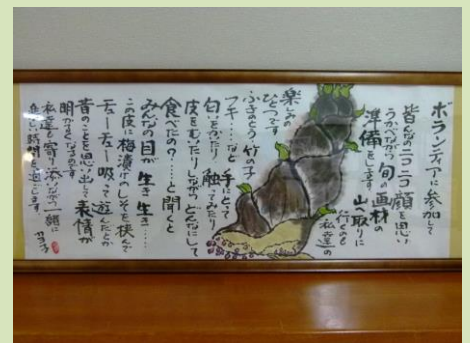 ボランティアに参加して
皆んなのニコニコ顔を思い
うかべながら旬の画材の
準備をします。山取りに
行くのも私達の
楽しみの
ひとつです。
ふきのとう 竹の子
フキ……など手にとって
匂いをかいだり 触ってみたり
皮をむいたりしながらどんなにして
食べたの？……と聞くと
みんなの目が生き生き……
この皮に梅漬けのしそを挟んで
チューチュー吸って遊んだとか
昔のことを思い出して表情が
明かるくなるのです。
私達も寄り添いながら一緒に
楽しい時間を過ごします。